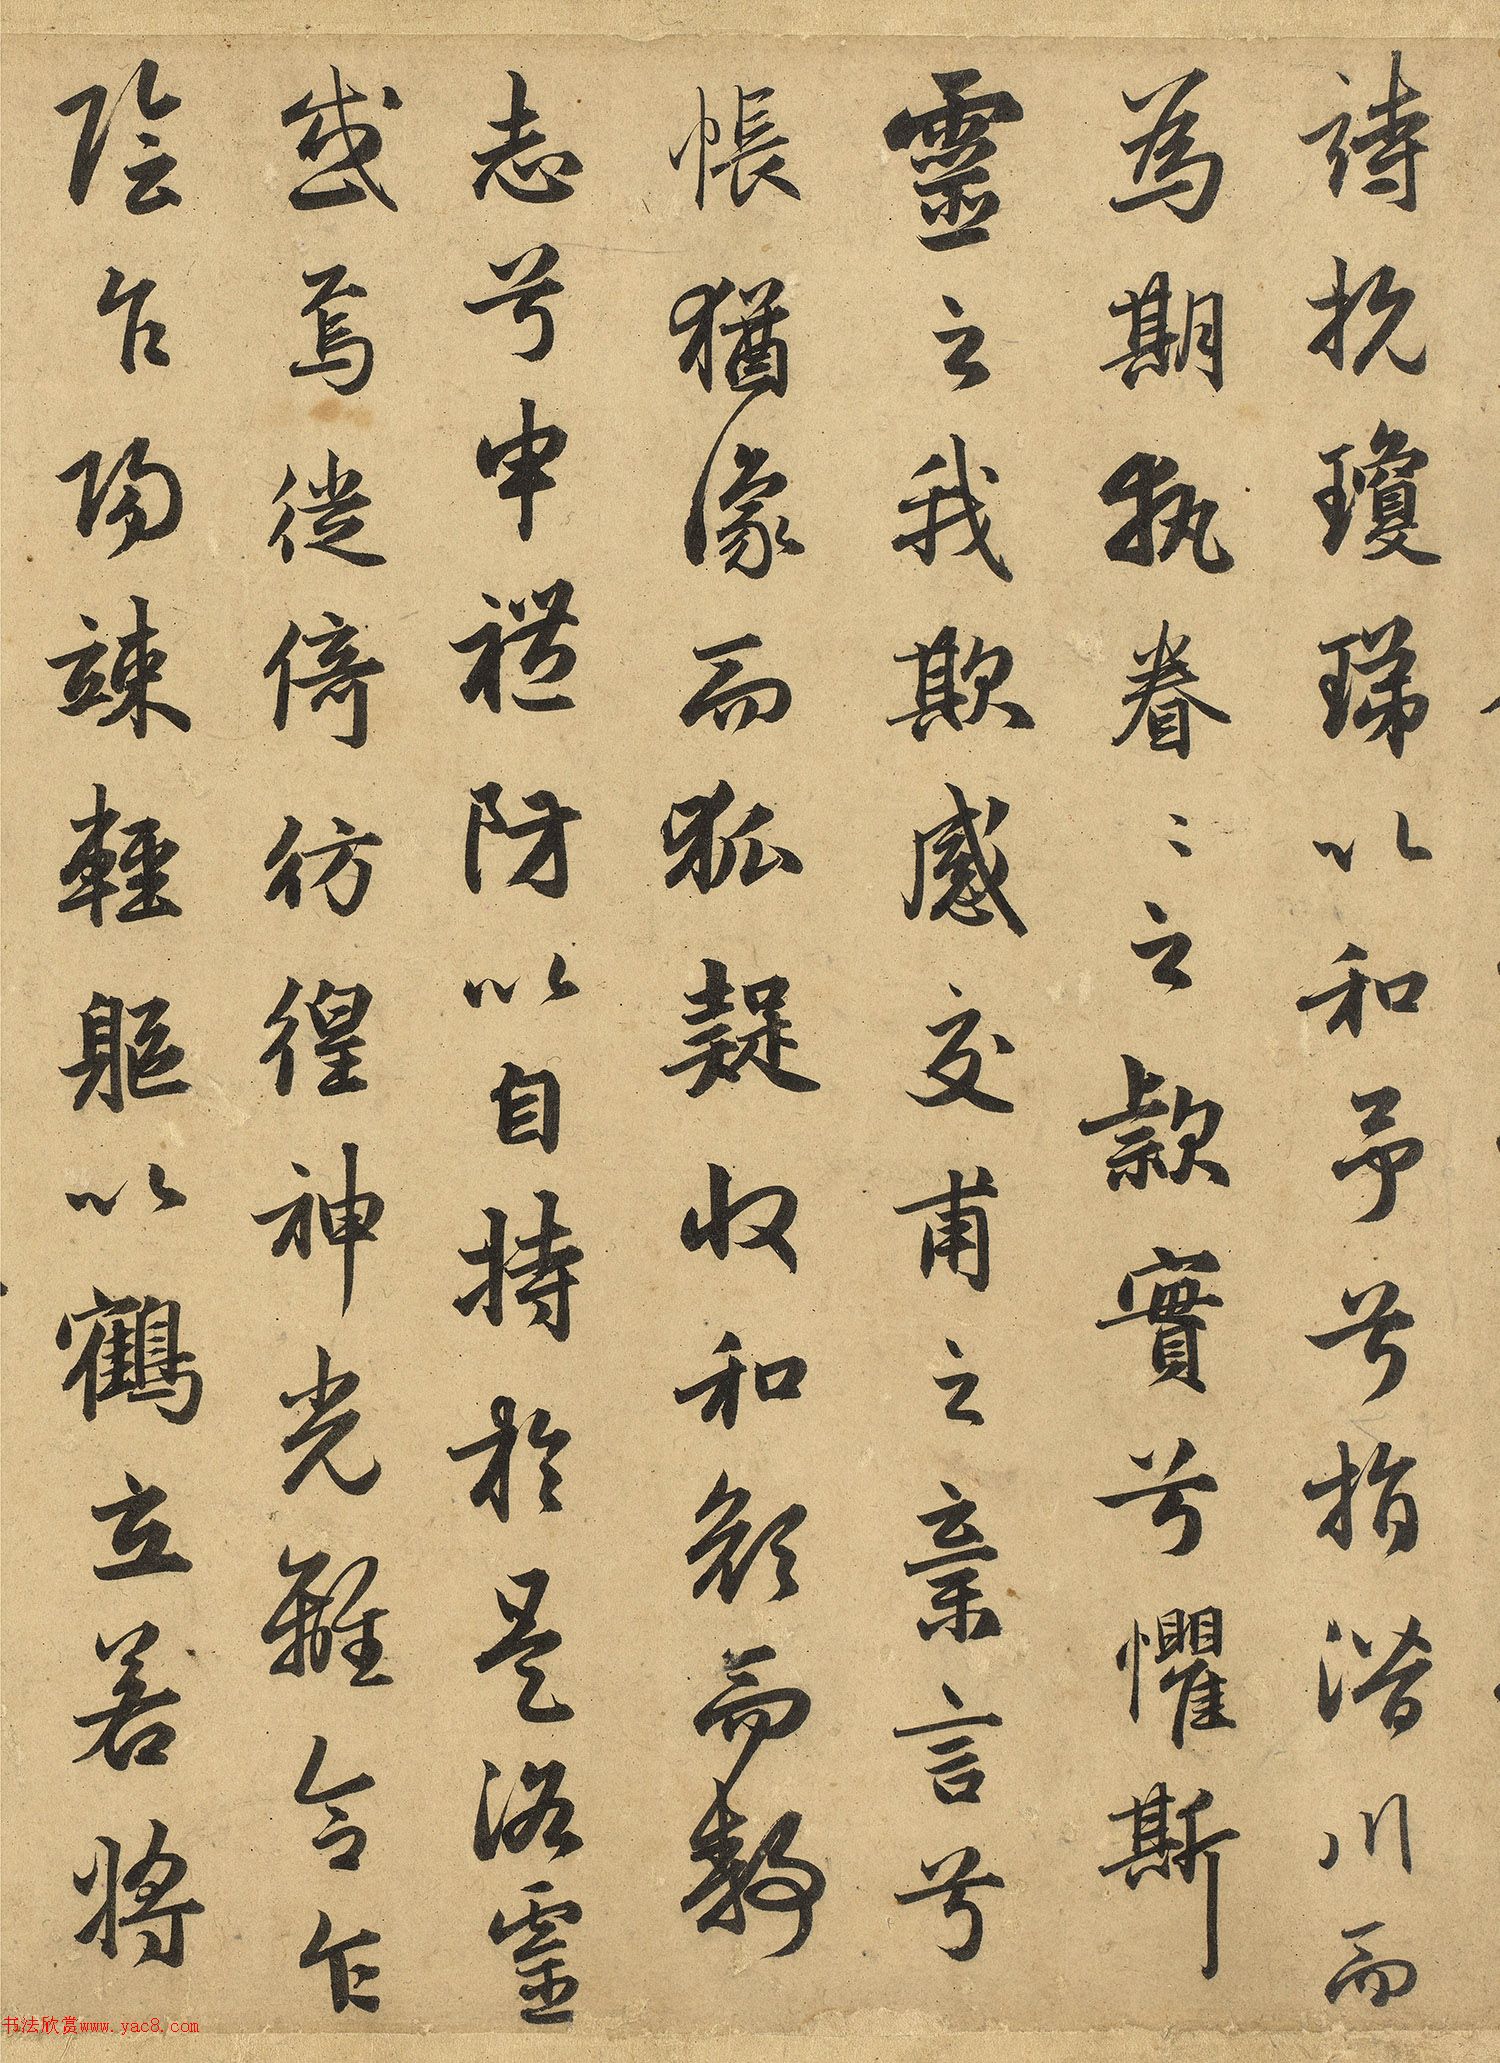 詩抗瓊珶以和予兮指潛川而
為期執眷〻之款實兮懼斯
靈之我欺感交甫之棄言兮
悵猶豫而狐疑收和顏而靜
志兮申禮防以自持於是洛靈
感焉徙倚彷徨神光離合乍
陰乍陽竦輕軀以鶴立若將
书法欣赏www.yac8.com